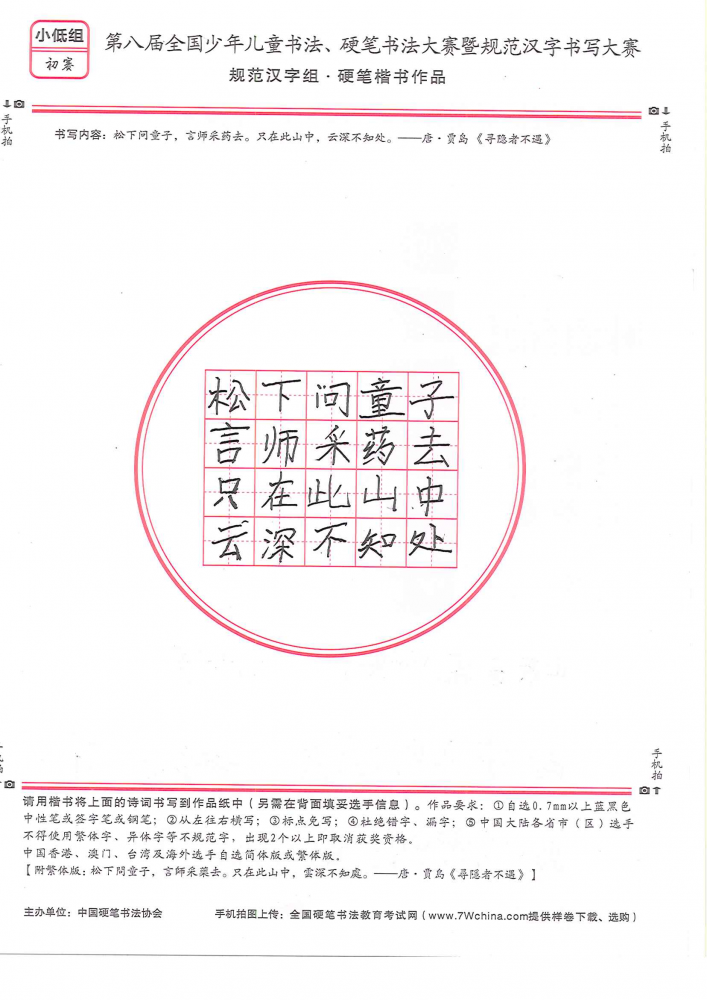 小低组
初赛
第八届全国少年儿童书法、硬笔书法大赛暨规范汉字书写大赛
规范汉字组·硬笔楷书作品
手机拍
手机拍
书写内容：松下问童子，言师采药去。只在此山中，云深不知处。——唐·贾岛《寻隐者不遇》
松下问童子
言师采药去
只在此山中
云深不知处
手机拍
请用楷书将上面的诗词书写到作品纸中（另需在背面填妥选手信息）。作品要求：①自选0.7mm以上蓝黑色
中性笔或签字笔或钢笔；②从左往右横写；③标点免写；④杜绝错字、漏字；⑤中国大陆各省市（区）选手
不得使用繁体字、异体字等不规范字，出现2个以上即取消获奖资格。
中国香港、澳门、台湾及海外选手自选简体版或繁体版。
【附繁体版：松下問童子，言師采藥去。只在此山中，雲深不知處。——唐·賈島《尋隱者不遇》】
主办单位：中国硬笔书法协会 手机拍图上传：全国硬笔书法教育考试网（www.7Wchina.com提供样卷下载、选购）